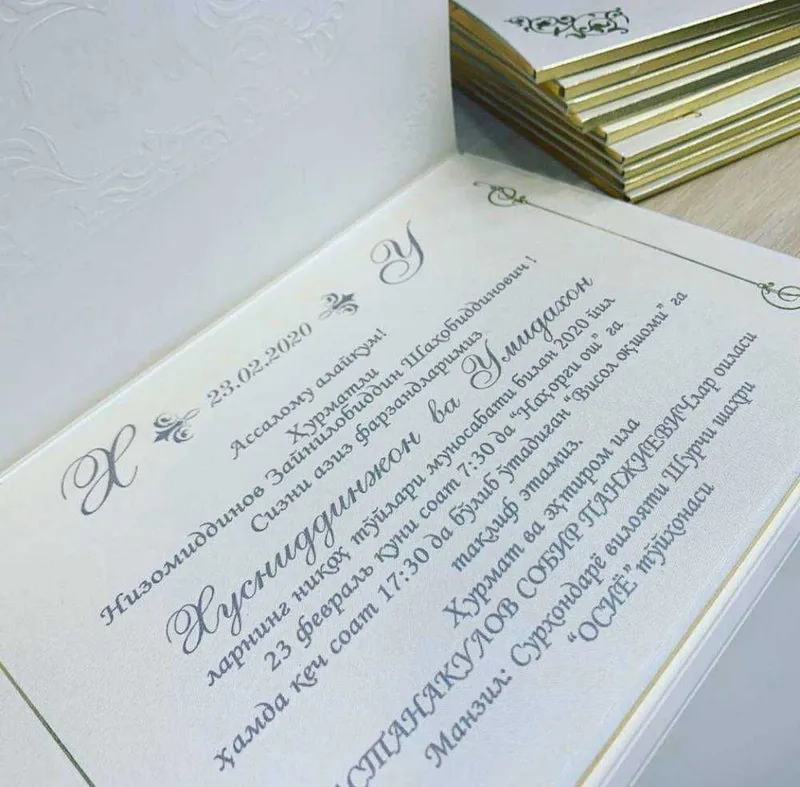 Х 23.02.2020 У
Ассалому алайкум!
Ҳурматли
Низомиддинов Зайниловиддин Шаҳобиддинович !
Сизни азиз фарзандларимиз
Хусниддинжон ва Умидахон
ларнинг никоҳ тўйлари муносабати билан 2020 йил
23 февраль куни соат 7:30 да “Наҳорги ош” га
ҳамда кеч соат 17:30 да бўлиб ўтадиган “Висол оқшоми” га
таклиф этамиз.
Ҳурмат ва эҳтиром ила
СТАНАКУЛОВ СОБИР ПАНЖИЕВИЧлар оиласи
Манзил: Сурхондарё вилояти Шўрчи шаҳри
“ОСИЁ” тўйхонаси